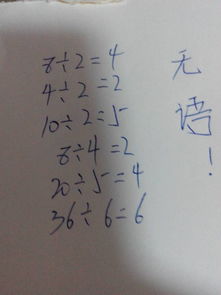 8÷2=4
4÷2=2
10÷2=5
8÷4=2
20÷5=4
36÷6=6
无语!